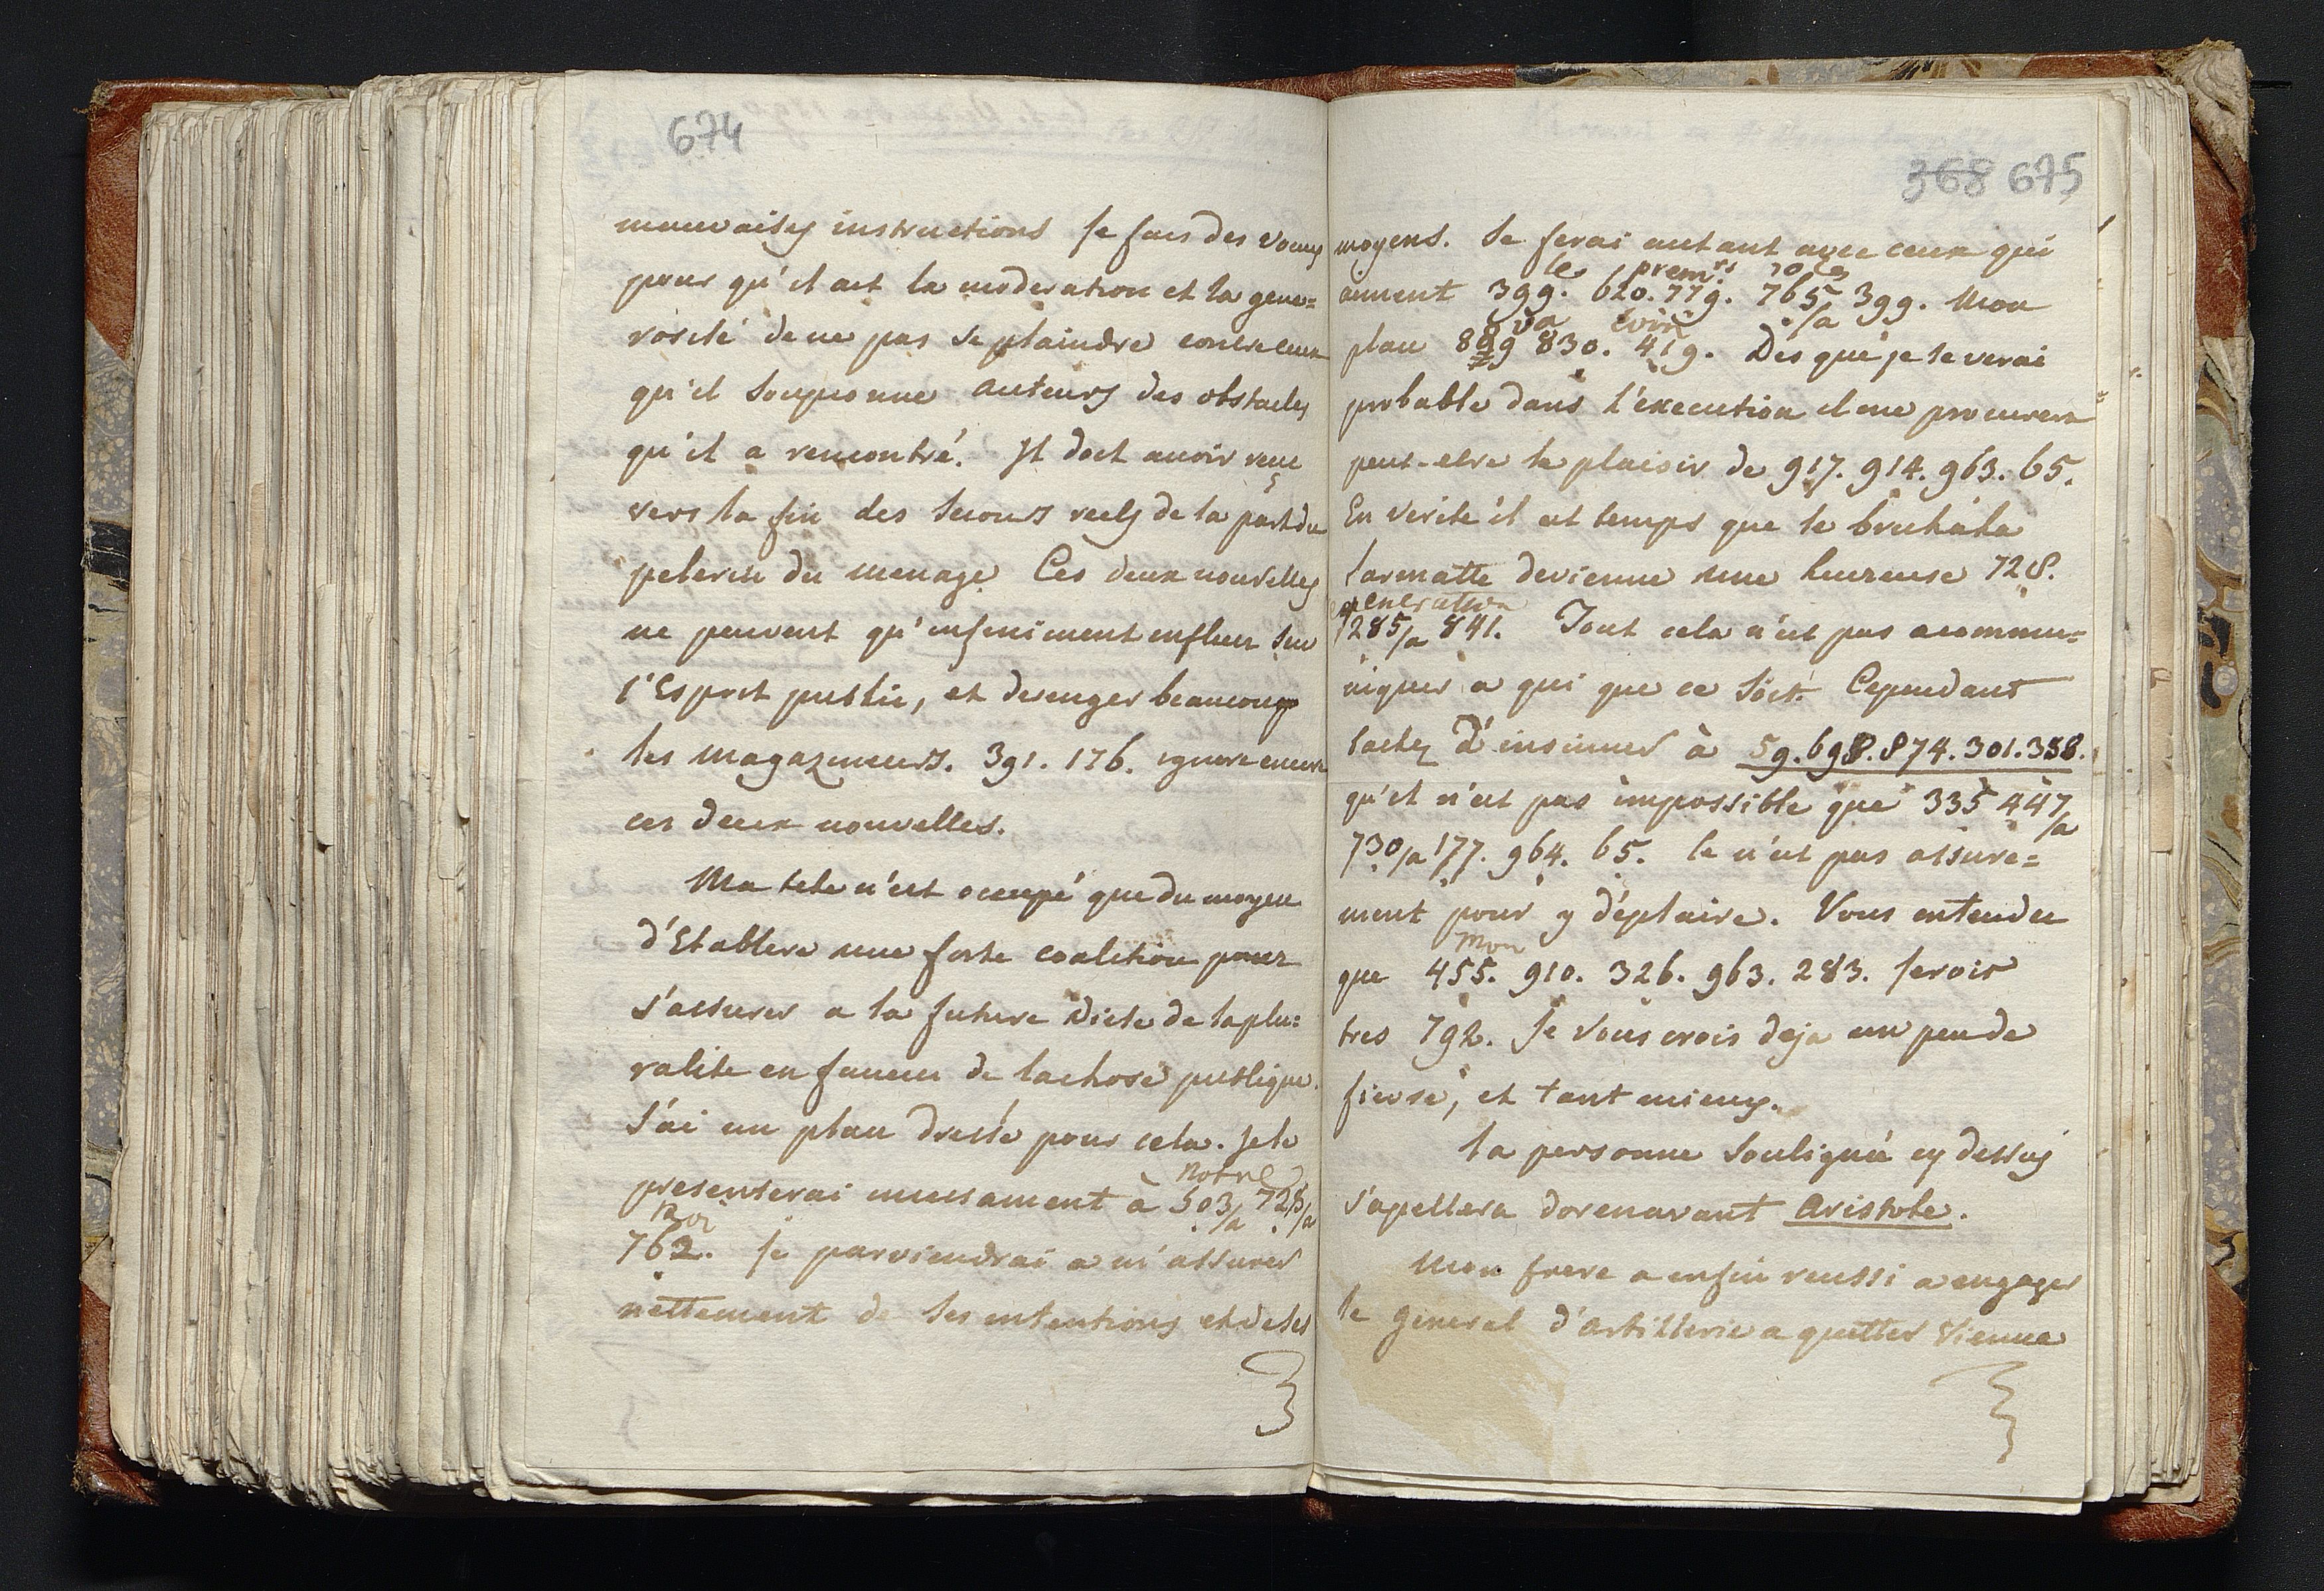 674
mauvaises instructions Je fais des voeux
pour qu'il ait la moderation et la gene=
rosité de ne pas se plaindre contre ceux
qu'il soupconne auteurs des obstacles
qu'il a rencontré. Il doit avoir recu
vers la fin des secours reels de la part du
pelerin du menage Ces deux nouvelles
ne peuvent qu'infiniment influer sur
l'Esprit public, et deranger beaucoup
les magazineurs. 391. 176. ignore encore
ces deux nouvelles.
Ma tete n'est occupé que du moyen
d'Etablire une forte coalition pour
s'assurer a la future Diete de la plu=
ralite en faveur de la chose publique.
J'ai un plan dressé pour cela. Je le
notre
presenterai incessament à 503/a 728/a
Roi
762. Je parviendrai a m'assurer
nettement de ses intentions et de ses
368 675
moyens. Je ferai autant avec ceux qui
les premrs roles
aiment 399. 620. 779. 765/a 399. Mon
plan 889 830. 419. Dès que je le verai
probable dans l'execution il me procurera
peut-etre le plaisir de 917. 914. 963. 65.
En verité il est temps que le bruhaha
Sarmatte devienne une heureuse 728.
generation
1285/a 841. Tout cela n'est pas a commu=
niquer a qui que ce soit. Cependant
tachez d'insinuer à 59. 698. 874. 301. 358.
qu'il n'est pas impossible que 335 447/a
730/a 177. 964. 65. Ce n'est pas assure=
ment pour y déplaire. Vous entender
mon
que 455. 910. 326. 963. 283. seroit
tres 792. Je vous crois deja un peu de
fierse, et tant mieux.
La personne souligné cy dessus
s'apellera dorenavant Aristote.
Mon frere a enfin reussi a engager
le General d'artillerie a quitter Vienne